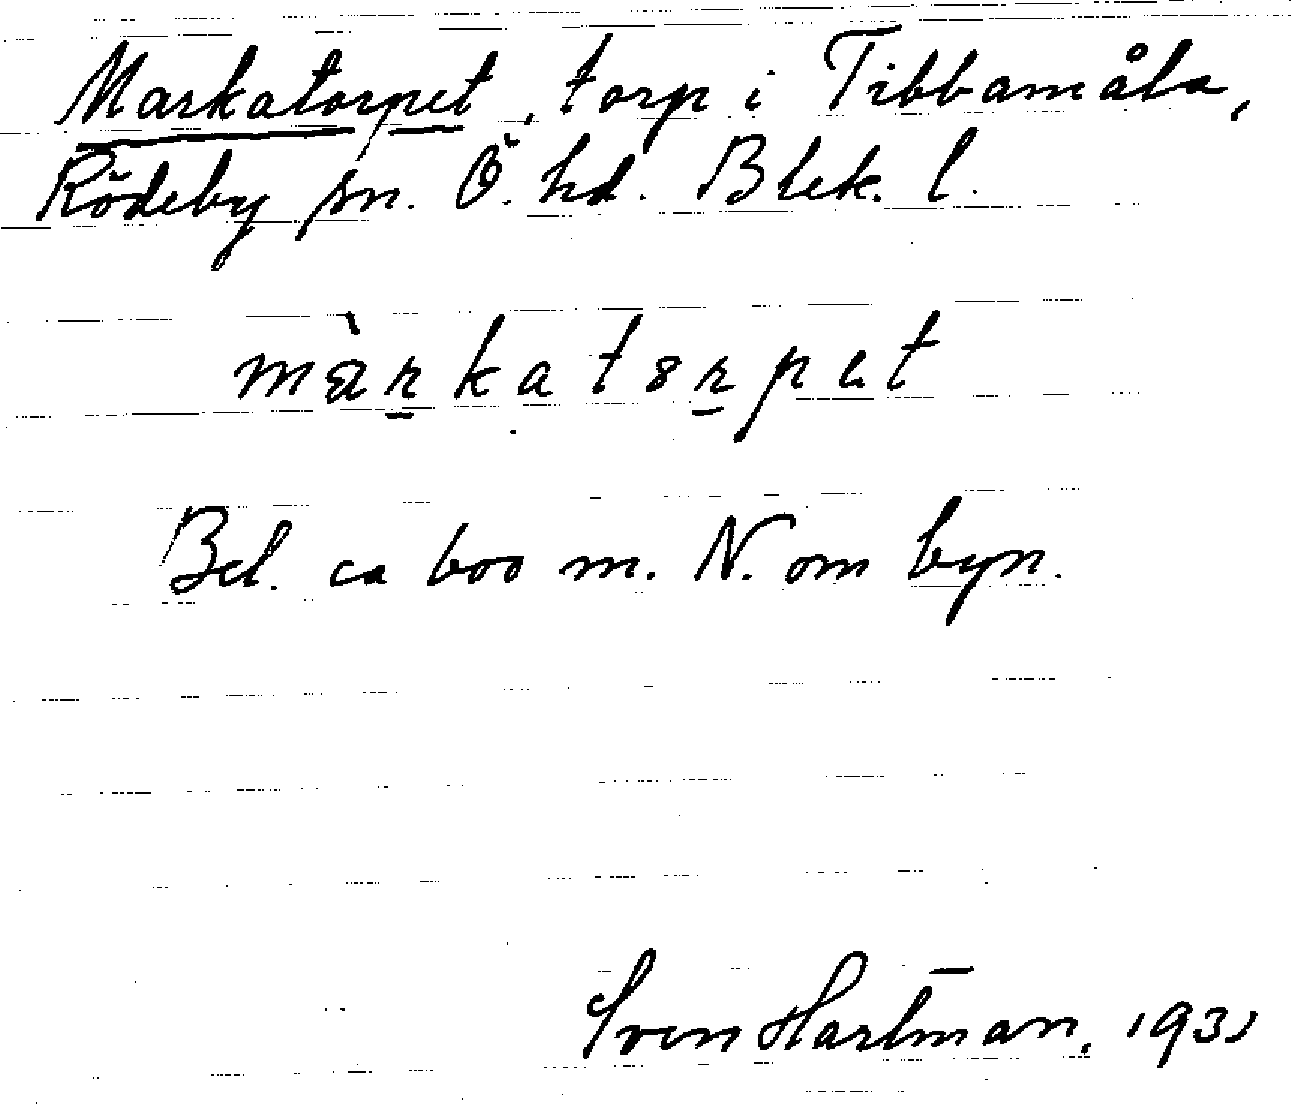 Markatorpet, torp i Tibbamåla,
Rödeby sn. Ö. hd. Blek. l.
màrkatorpet
Bel. ca 600 m. N. om byn.
Sven Hartman, 1931